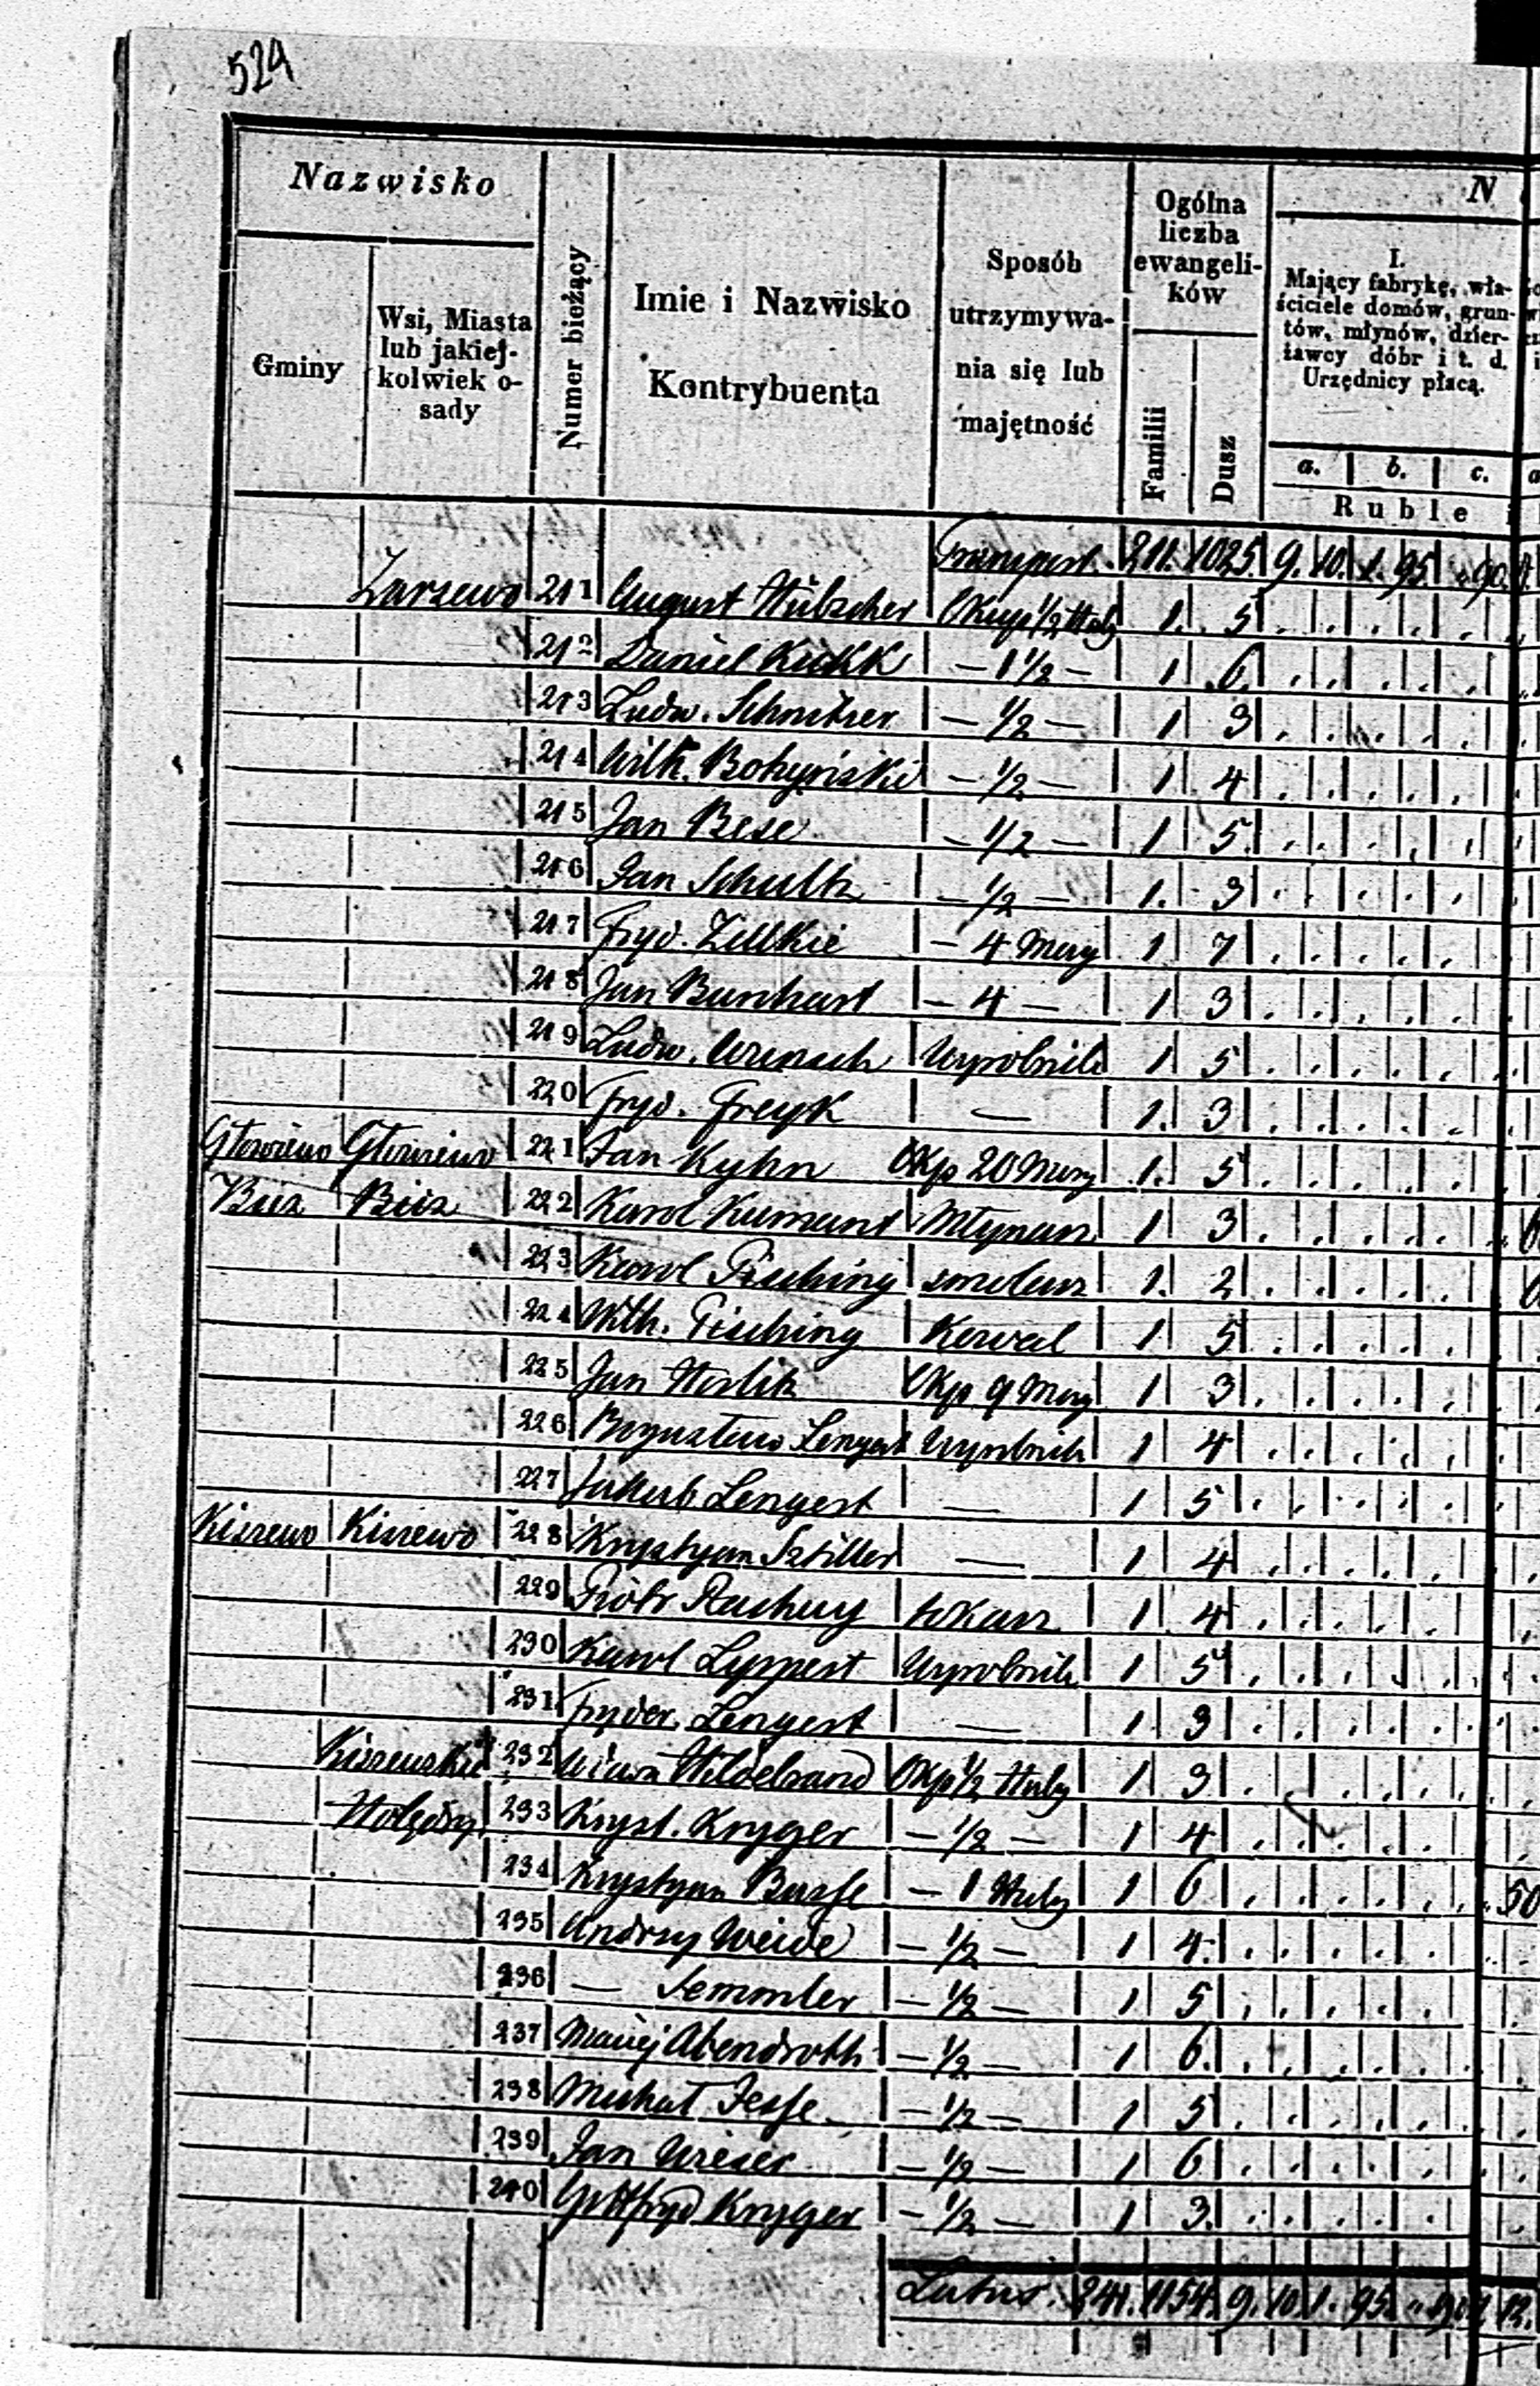 524
Nazwisko
Gminy
Wsi, Miasta lub jakiej-kolwiek o-sady
Numer bieżący
Imie i Nazwisko Kontrybuenta
Sposób utrzymywa-nia się lub majętność
Ogólna liczba ewangeli-ków
Familii
Dusz
N
I.
Mający fabrykę, wła-
ściciele domów, grun-
tów, młynów, dzier-
żawcy dóbr i t. d.
Urzędnicy płacą.
a. b. c.
Ruble
Transport. 211. 1025. 9. 10. 1. 95 " 90
Zarzewo 211 August Hübscher Okup 1/2 Huby 1. 5
212 Daniel Kukk — 1 1/2 — 1 6
213 Ludw. Schnitzer — 1/2 — 1 3
214 Wilh. — 1/2 — 1 4
215 Jan Bese — 1/2 — 1 5
216 Jan Schultz — 1/2 — 1. 3
217 Fryd. — 4 Morg 1. 7
218 Jan — 4 — 1 3
219 Ludw. Wyrobnik 1. 5
220 Fryd. Freyk — 1. 3
221 Jan Kyhn Okp 20 Morg 1. 5
222 Karol Młynarz 1 3
223 Karol smolarz 1. 2
224 Wilh. Kowal 1 5
225 Jan Okp 9 Morg 1 3
226 Bogusław Lengert Wyrobnik 1 4
227 Jakub Lengert — 1 5
Kiszewo Kiszewo 228 Krystyan Sztiller — 1 4
229 Piotr tokarz 1 4
230 Karol Wyrobnik 1 5
231 Fryder. Lengert — 1 3
Kiszewskie 232 Hildebrand Okp 1/2 Huby 1 3
Holędry 233 Kryst. Kryger — 1/2 — 1 4
234 Krystyan Busse — 1 Huby 1 6 50
235 Andrzy Weide — 1/2 — 1 4
236 — Semmler — 1/2 — 1 5
237 Maciej Abendroth — 1/2 — 1 6.
238 Michał Jesse — 1/2 — 1 5
239 Jan Wieser — 1/2 — 1 6
240 Gottfryd Kryger — 1/2 — 1 3.
Latus. 241. 1154. 9. 10. 1. 95.